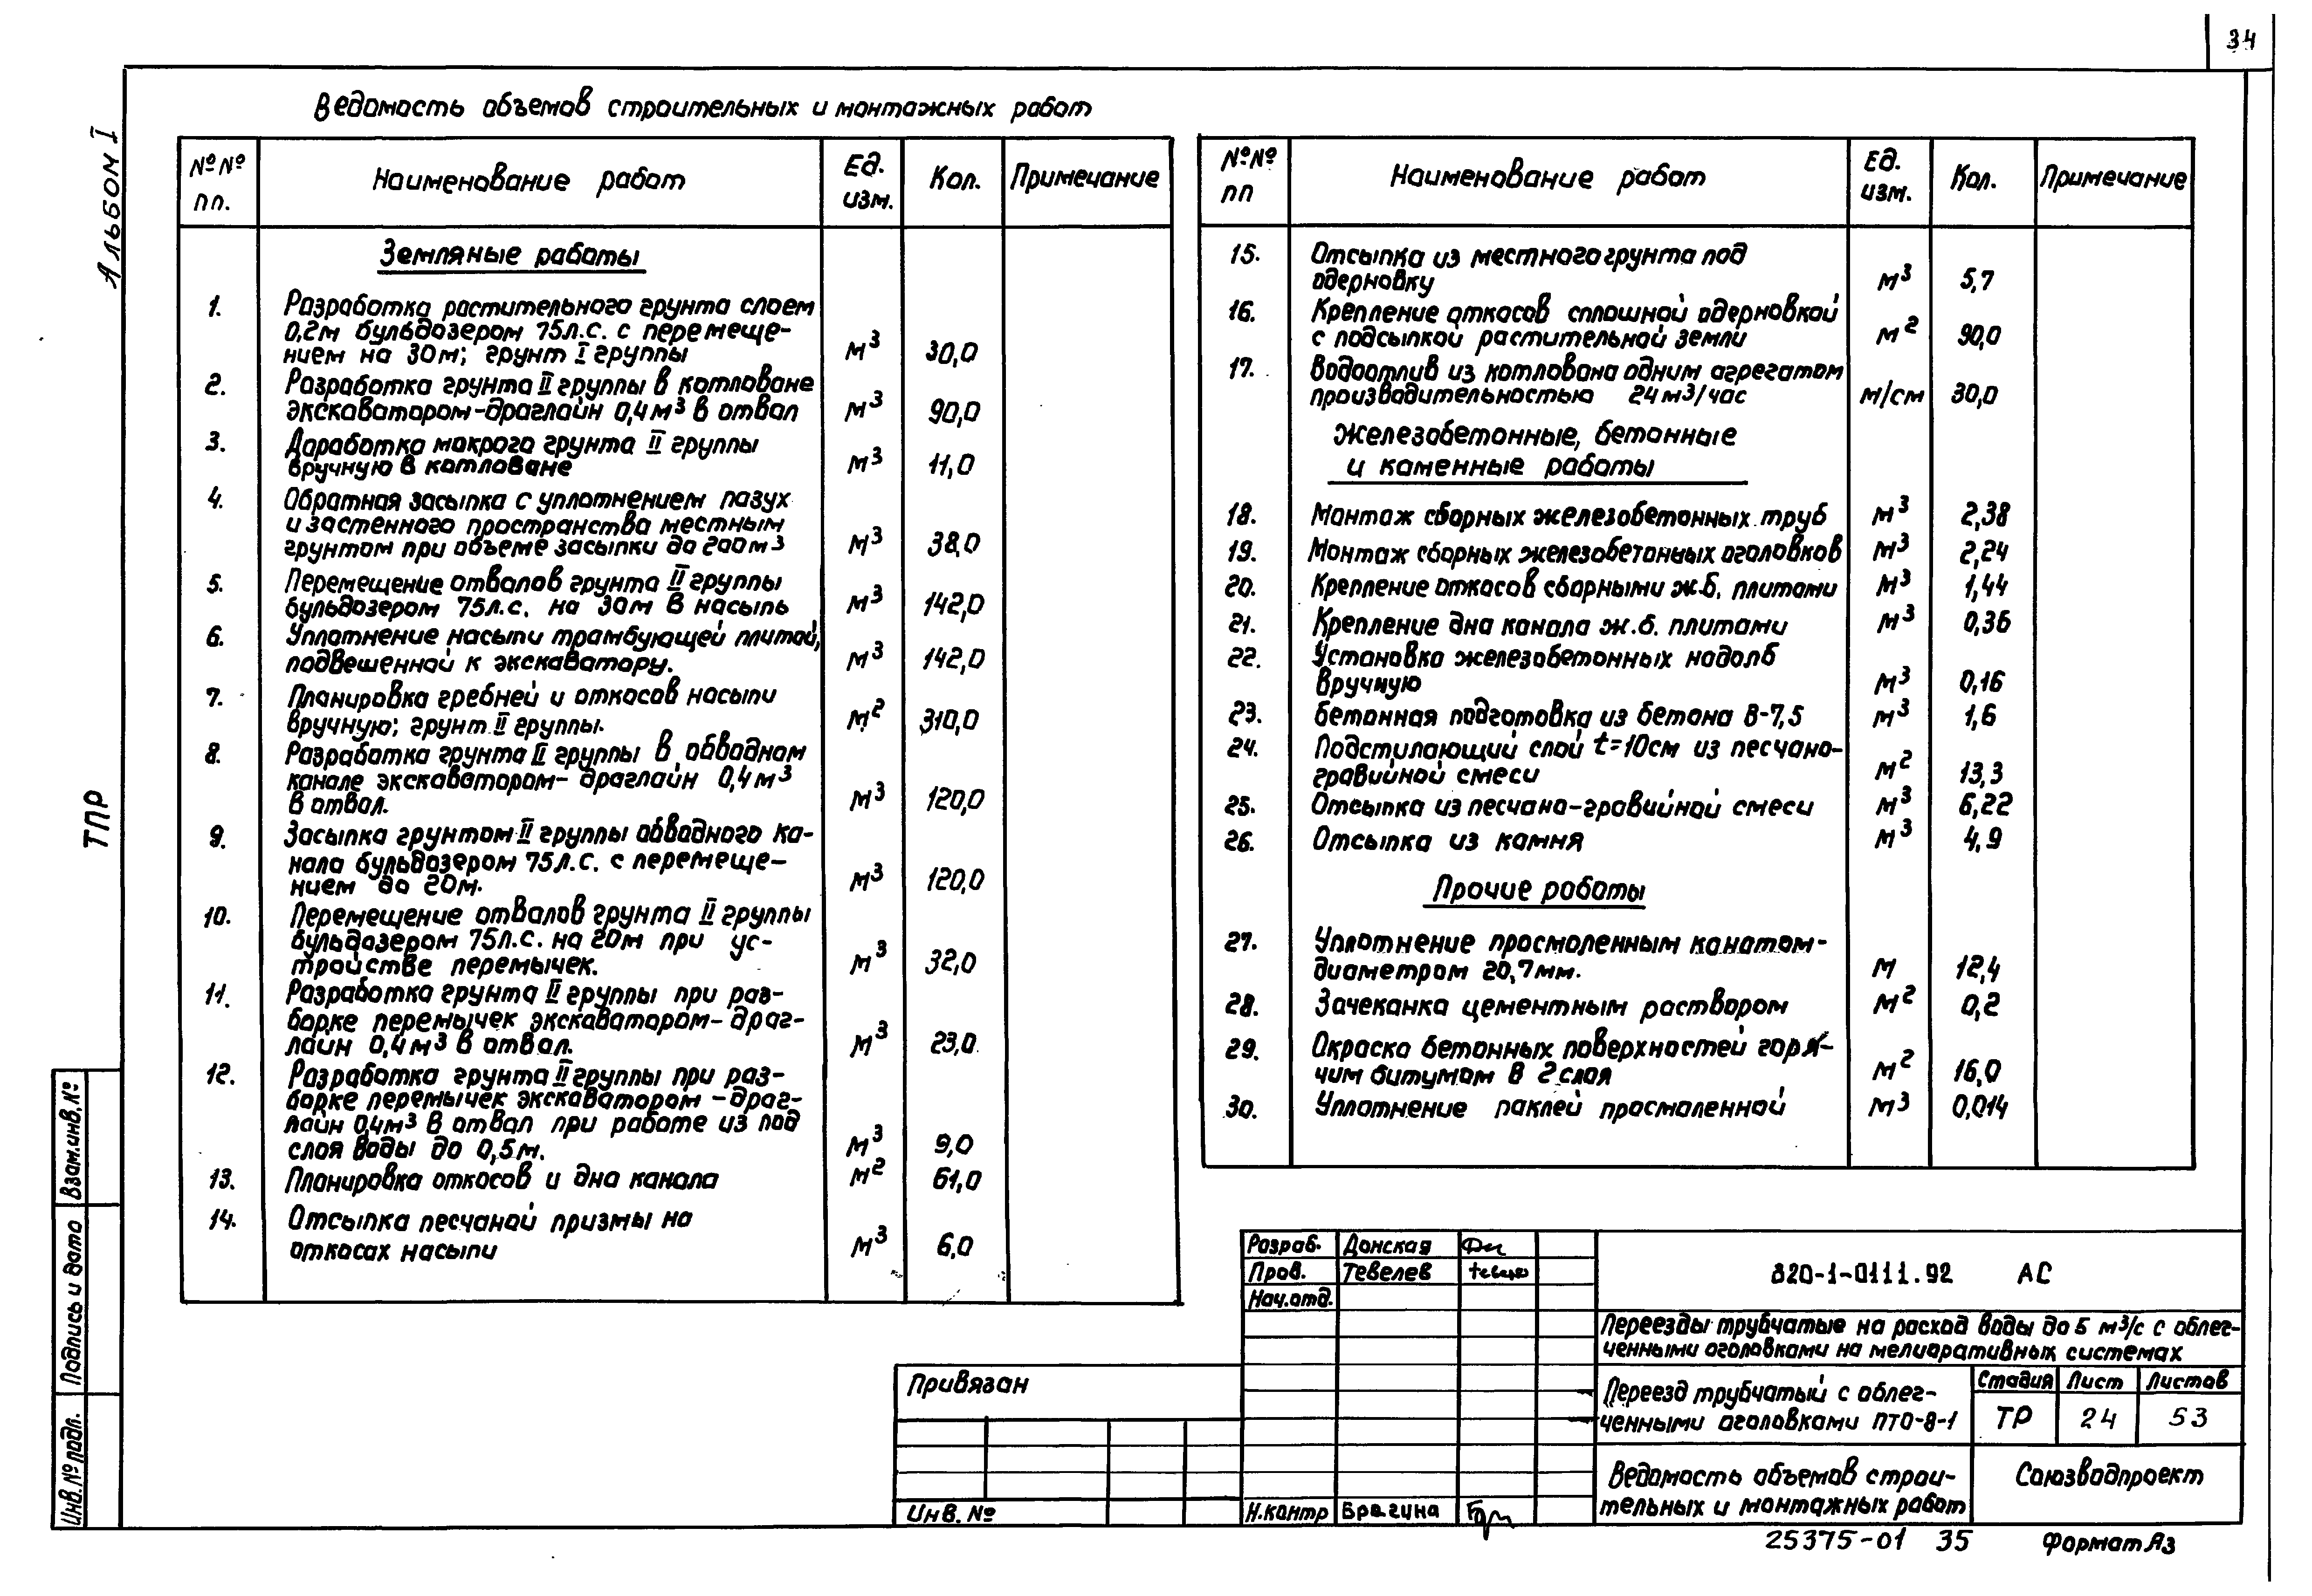 34
Альбом I
ТПР
Ведомость объемов строительных и монтажных работ
№№ пп. Наименование работ Ед. изм. Кол. Примечание
Земляные работы
1. Разработка растительного грунта слоем
0,2м бульдозером 75л.с. с перемеще-
нием на 30м; грунт I группы м³ 30,0
2. Разработка грунта II группы в котловане
экскаватором-драглайн 0,4м³ в отвал м³ 90,0
3. Доработка мокрого грунта II группы
вручную в котловане м³ 11,0
4. Обратная засыпка с уплотнением пазух
и застенного пространства местным
грунтом при объеме засыпки до 200м³ м³ 38,0
5. Перемещение отвалов грунта II группы
бульдозером 75л.с. на 30м в насыпь м³ 142,0
6. Уплотнение насыпи трамбующей плитой,
подвешенной к экскаватору. м³ 142,0
7. Планировка гребней и откосов насыпи
вручную; грунт II группы. м² 310,0
8. Разработка грунта II группы в обводном
канале экскаватором-драглайн 0,4м³
в отвал. м³ 120,0
9. Засыпка грунтом II группы обводного ка-
нала бульдозером 75л.с. с перемеще-
нием до 20м. м³ 120,0
10. Перемещение отвалов грунта II группы
бульдозером 75л.с. на 20м при ус-
тройстве перемычек. м³ 32,0
11. Разработка грунта II группы при раз-
борке перемычек экскаватором-драг-
лайн 0,4м³ в отвал. м³ 23,0
12. Разработка грунта II группы при раз-
борке перемычек экскаватором-драг-
лайн 0,4м³ в отвал при работе из под
слоя воды до 0,5м. м³ 9,0
13. Планировка откосов и дна канала м² 61,0
14. Отсыпка песчаной призмы на
откосах насыпи м³ 6,0
№№ пп Наименование работ Ед. изм. Кол. Примечание
15. Отсыпка из местного грунта под
одерновку м³ 5,7
16. Крепление откосов сплошной одерновкой
с подсыпкой растительной земли м² 90,0
17. Водоотлив из котлована одним агрегатом
производительностью 24м³/час м/см 30,0
Железобетонные, бетонные
и каменные работы
18. Монтаж сборных железобетонных труб м³ 2,38
19. Монтаж сборных железобетонных оголовков м³ 2,24
20. Крепление откосов сборными ж.б. плитами м³ 1,44
21. Крепление дна канала ж.б. плитами м³ 0,36
22. Установка железобетонных надолб
вручную м³ 0,16
23. бетонная подготовка из бетона В-7,5 м³ 1,6
24. Подстилающий слой t=10см из песчано-
гравийной смеси м² 13,3
25. Отсыпка из песчано-гравийной смеси м³ 6,22
26. Отсыпка из камня м³ 4,9
Прочие работы
27. Уплотнение просмоленным канатом-
диаметром 20,7мм. м 12,4
28. Зачеканка цементным раствором м² 0,2
29. Окраска бетонных поверхностей горя-
чим битумом в 2 слоя м² 16,0
30. Уплотнение паклей просмоленной м³ 0,014
Взам.инв.№
Подпись и дата
Инв.№ подл.
Привязан
Инв. №
Разраб. Донская
Пров. Тевелев
Нач.отд.
Н.контр Брагина
820-1-0111.92 АС
Переезды трубчатые на расход воды до 5 м³/с с облег-
ченными оголовками на мелиоративных системах
Переезд трубчатый с облег-
ченными оголовками ПТО-8-1
Стадия Лист Листов
ТР 24 53
Ведомость объемов строи-
тельных и монтажных работ
Союзводпроект
25375-01 35 Формат А3